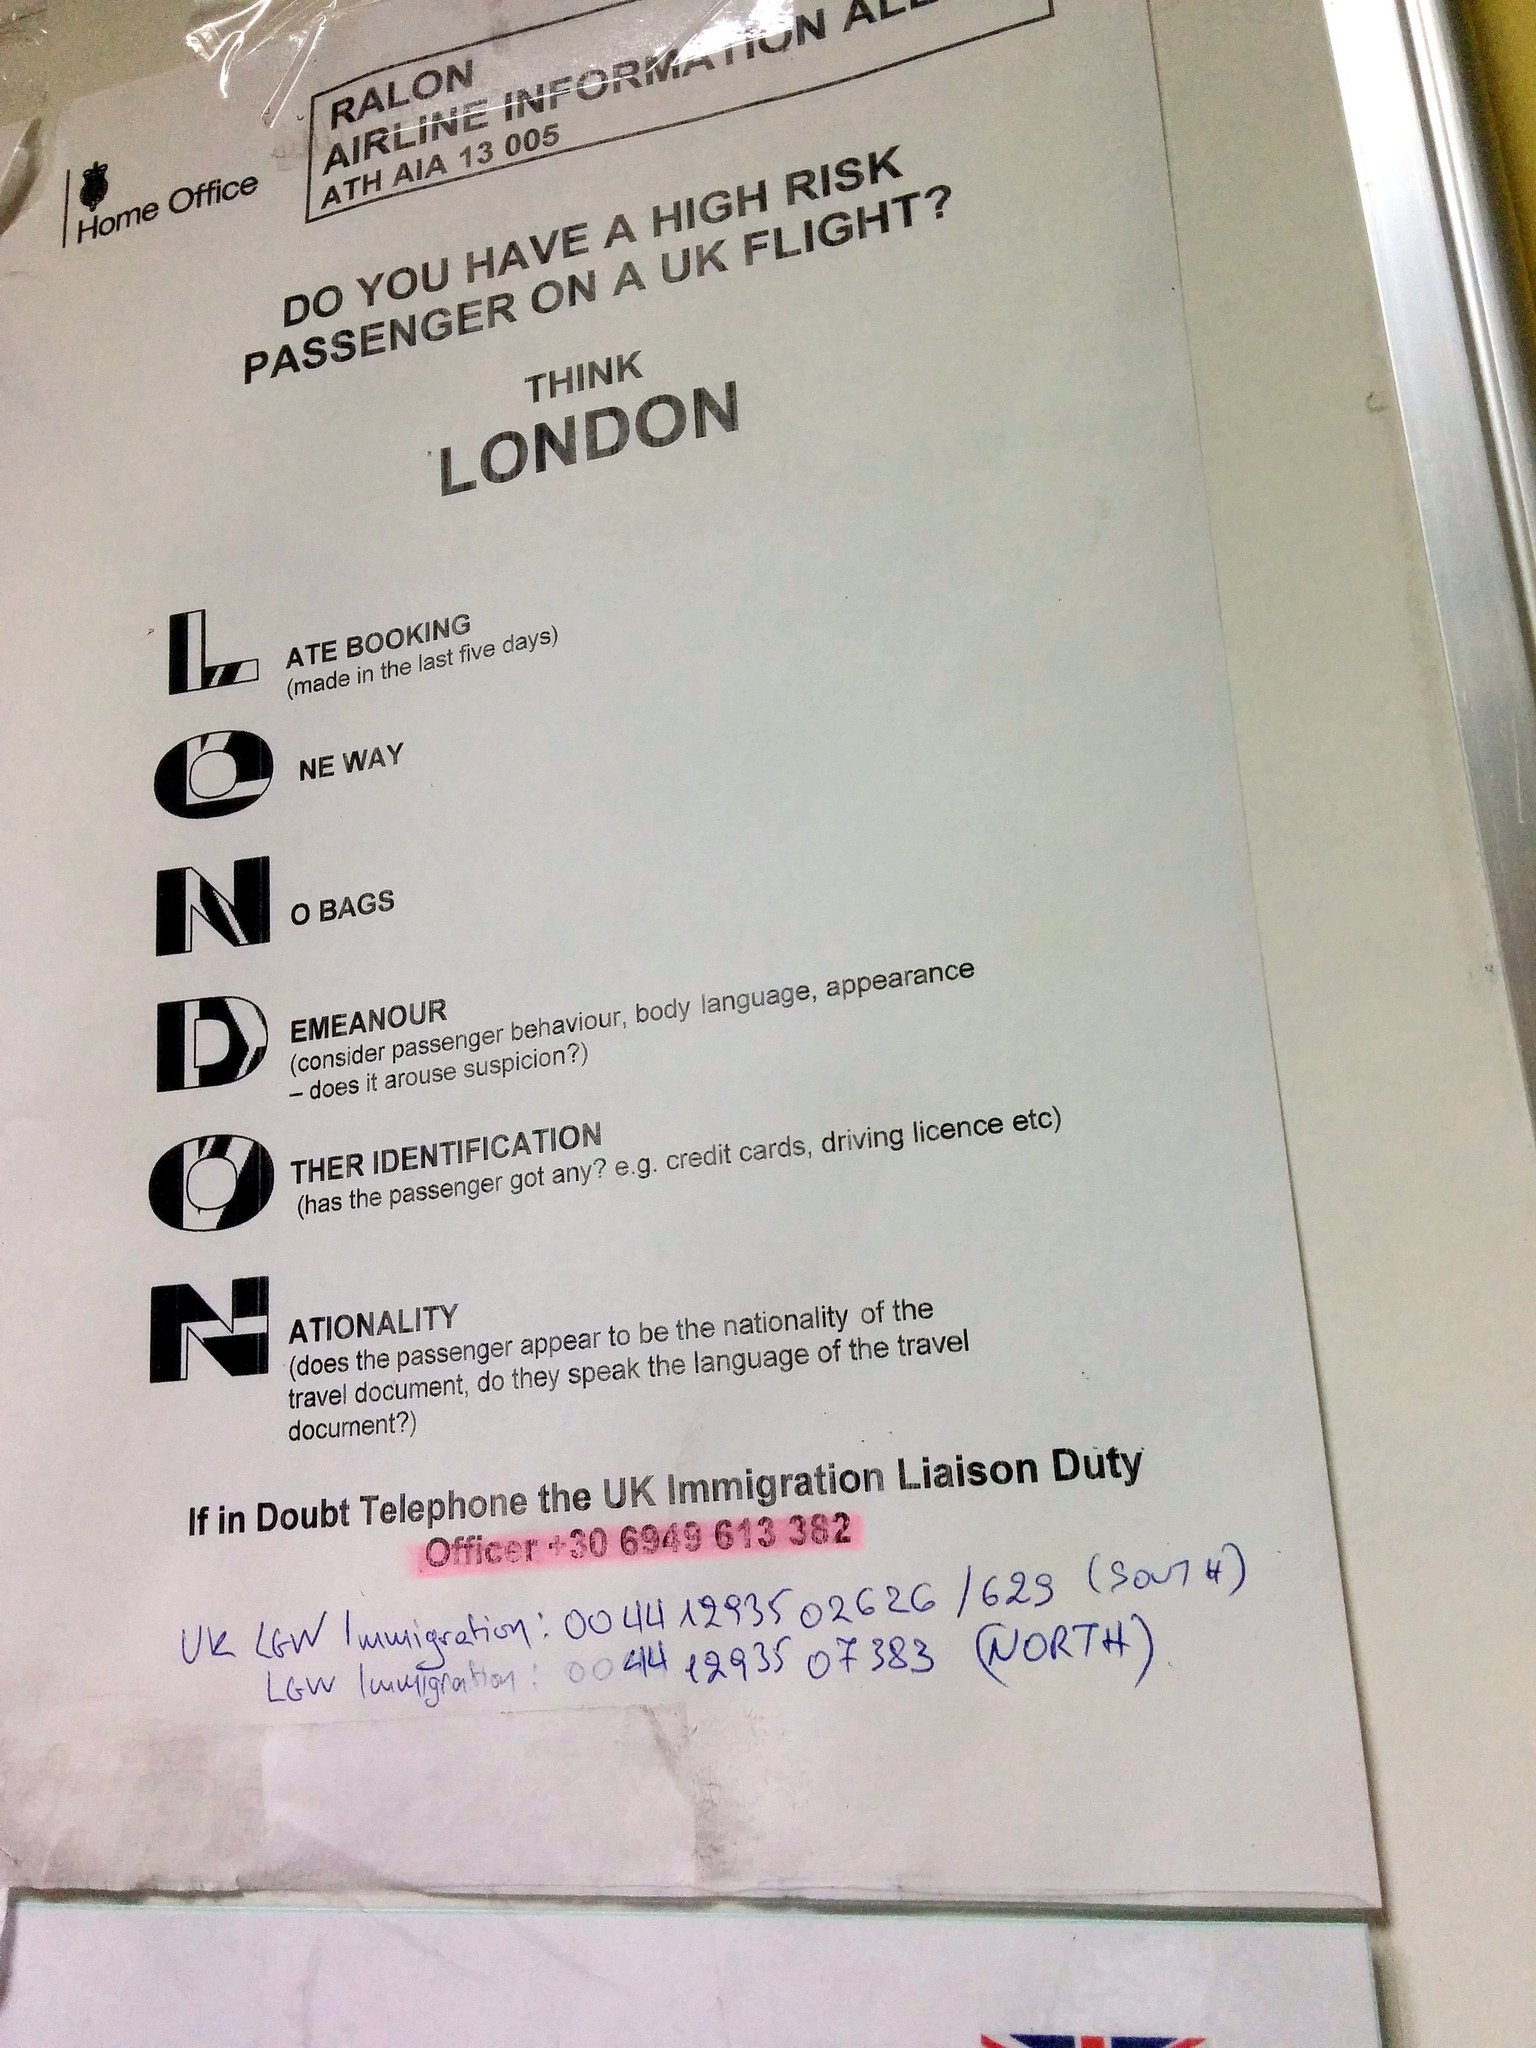 RALON
AIRLINE INFORMATION
ATH AIA 13 005
Home Office
DO YOU HAVE A HIGH RISK
PASSENGER ON A UK FLIGHT?
THINK
LONDON
LATE BOOKING
(made in the last five days)
ONE WAY
NO BAGS
DEMEANOUR
(consider passenger behaviour, body language, appearance
– does it arouse suspicion?)
OTHER IDENTIFICATION
(has the passenger got any? e.g. credit cards, driving licence etc)
NATIONALITY
(does the passenger appear to be the nationality of the
travel document, do they speak the language of the travel
document?)
If in Doubt Telephone the UK Immigration Liaison Duty
Officer +30 6949 613 382
UK LGW Immigration: 0044 12935 02626 /629 (SOUTH)
LGW Immigration: 0044 12935 07383 (NORTH)